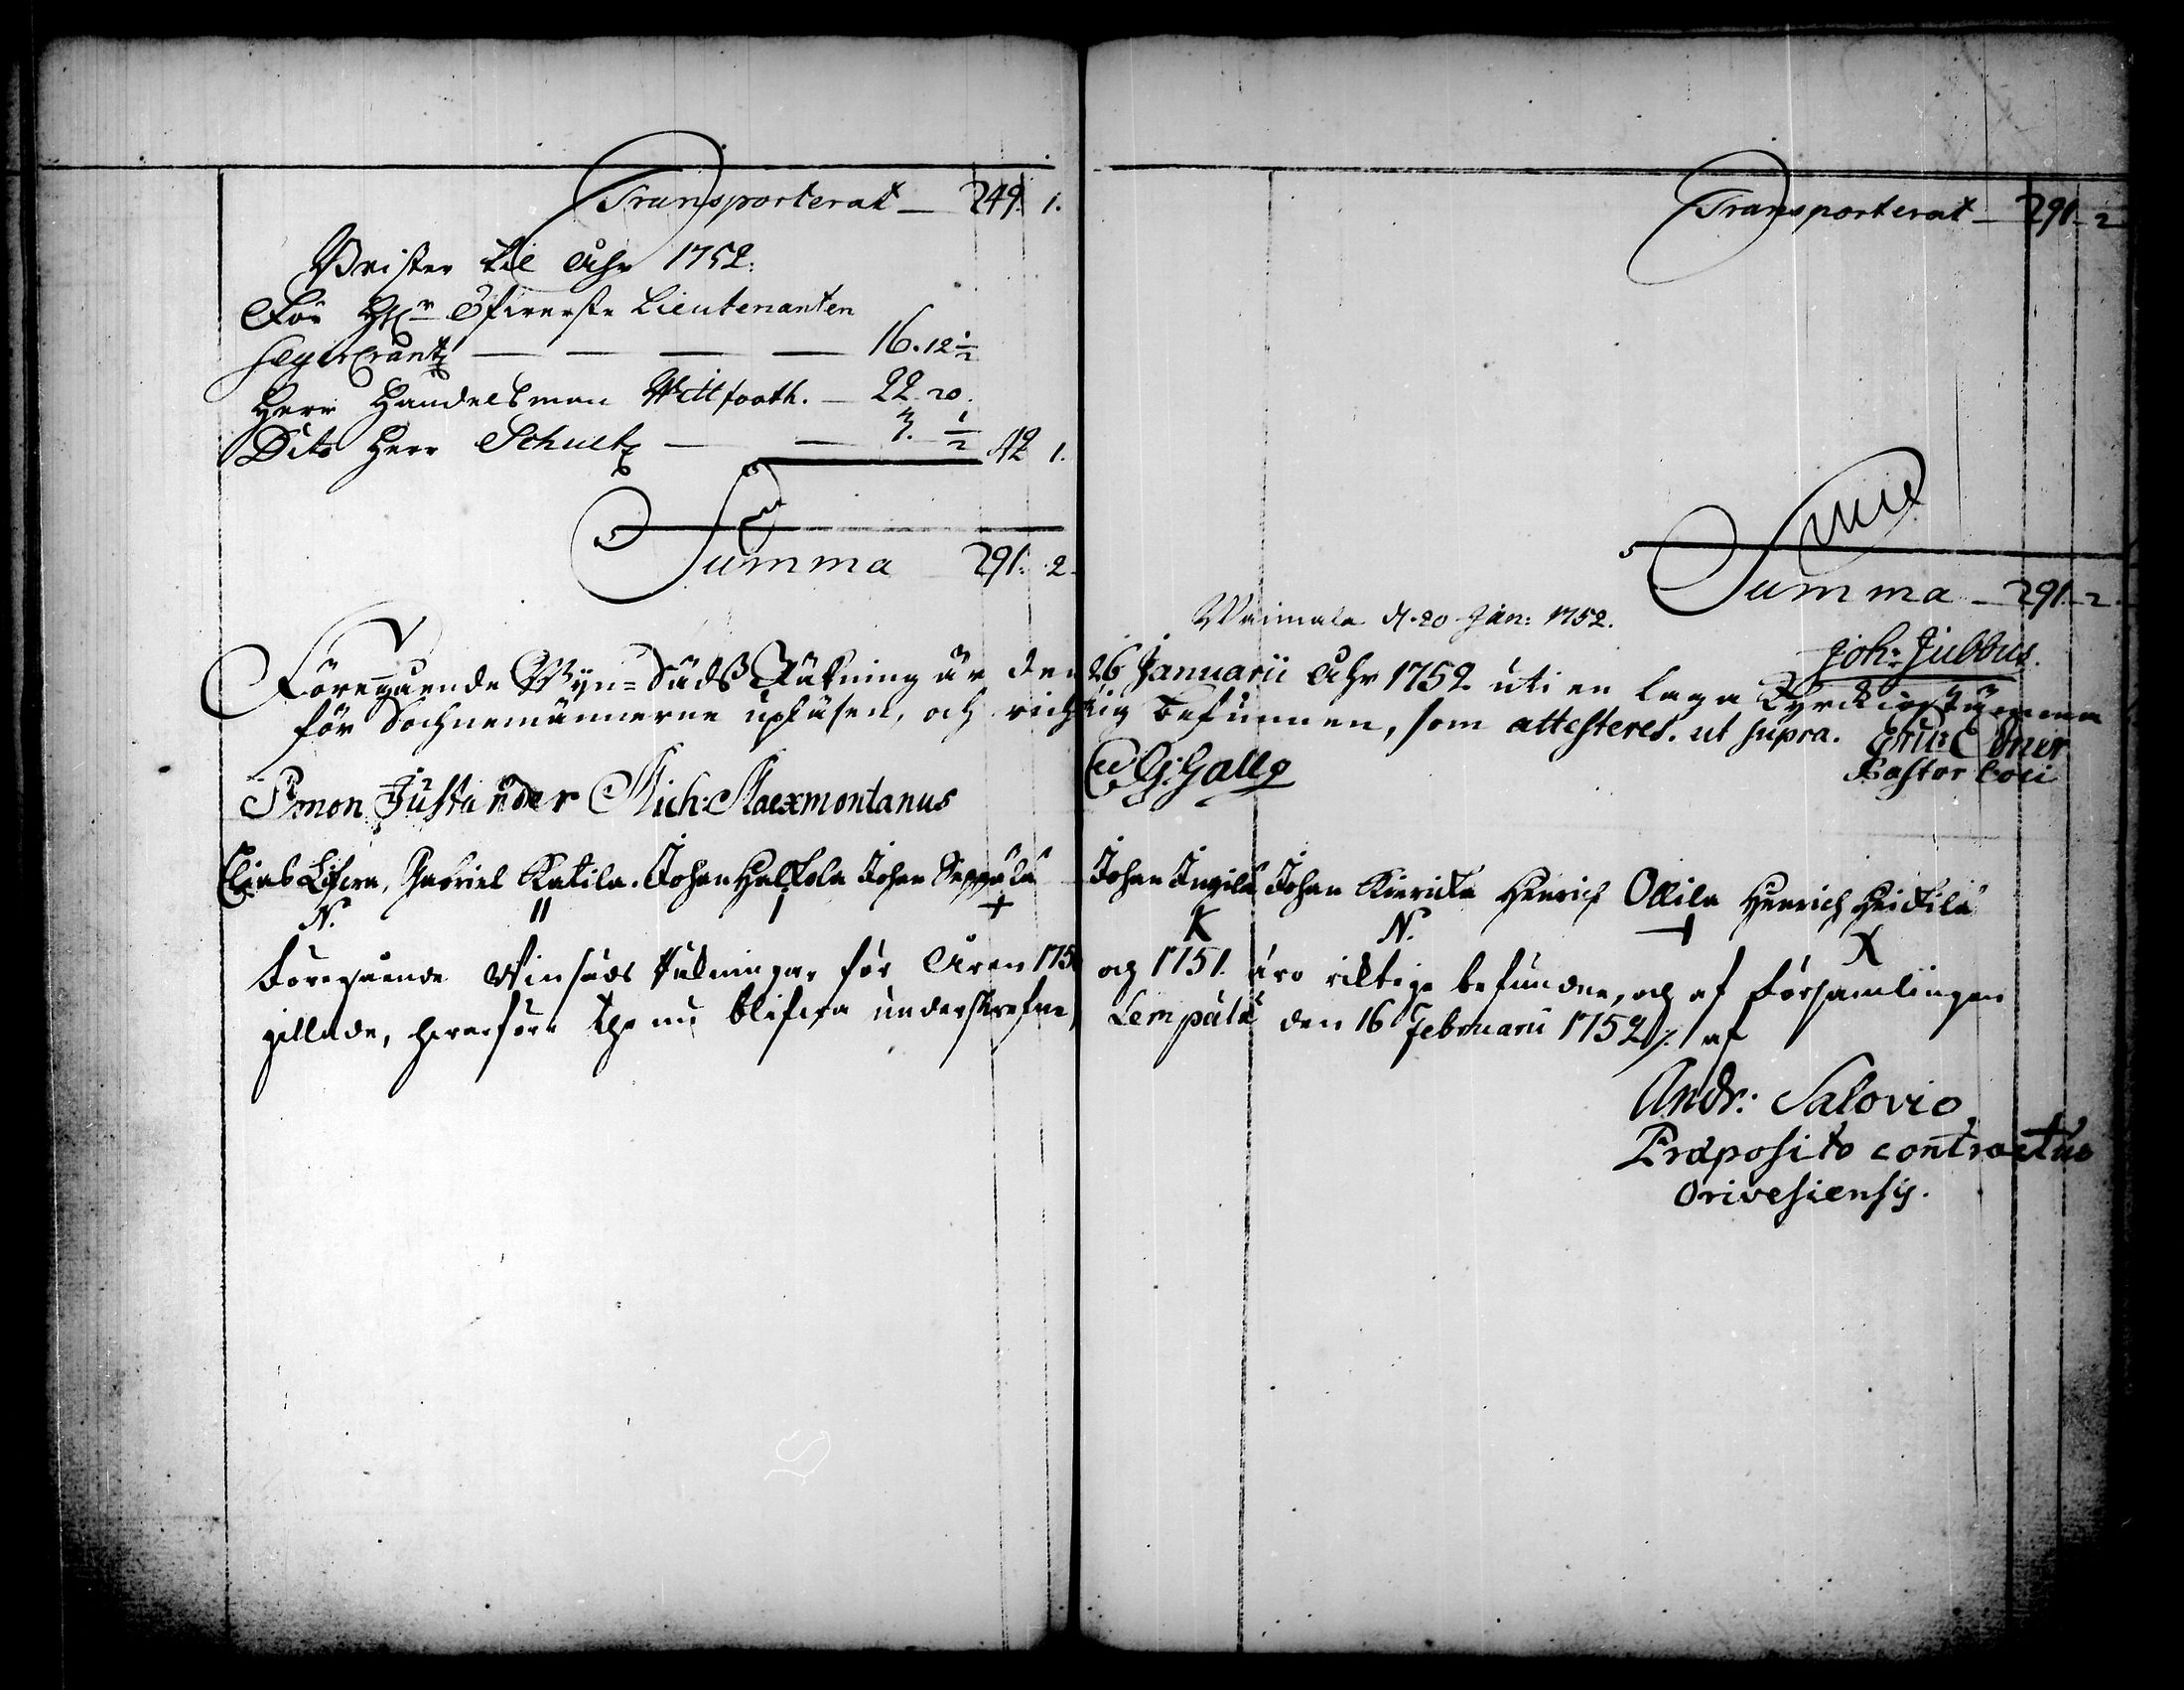 Transporterat — 249. 1.
Brister til åhr 1752.
För H:r Öfwerste Lieutenanten
16. 12 1/2
Herr Handelsman Wittfooth. — 22. 20.
Dito Herr Schultz — 3. 1/2 42 1.
Summa 291. 2.
Transporterat — 291. 2
Summa — 291. 2.
d. 20 Jan: 1752.
Joh: Jubbus.
Föregående Wijn-Säds Räkning är den 26 Januarii åhr 1752 uti en laga Kyrckiostämma
för Sochnemännerne upläsen, och richtig befunnen, som attesteres. ut supra.
Pastor Loci
Simon Justander Mich: Maexmontanus G: Gallg
Elias Gabriel Katila. Johan Johan Seppälä Johan Ingilä Johan Henrich Ollila Henrich Heickilä
N. II I + K N. + X
Föregående Winsäds Räkningar för Åren 1750 och 1751. äro riktige befundne, och af Församlingen
gillade, herareföre the nu blifwa underskrefne, Lempälä den 16 Februarii 1752 ./. af
Andr: Salovio
Præposito contractus
Orivesiensis.